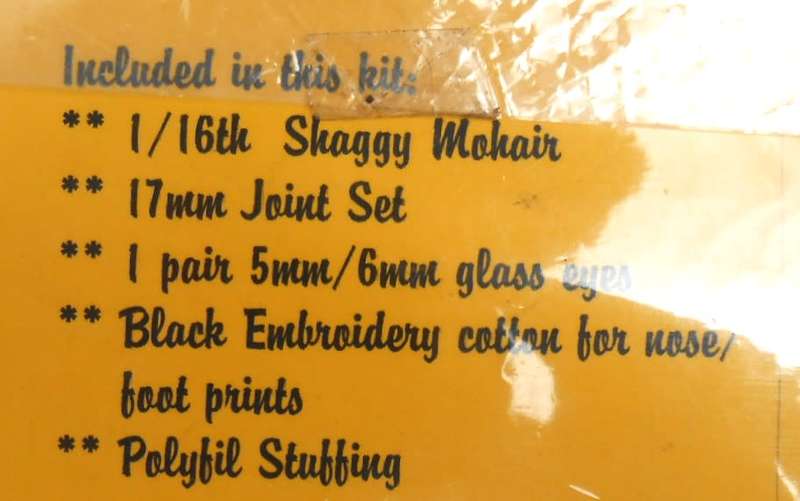 Included in this kit:
** 1/16th Shaggy Mohair
** 17mm Joint Set
** 1 pair 5mm/6mm glass eyes
** Black Embroidery cotton for nose/
foot prints
** Polyfil Stuffing